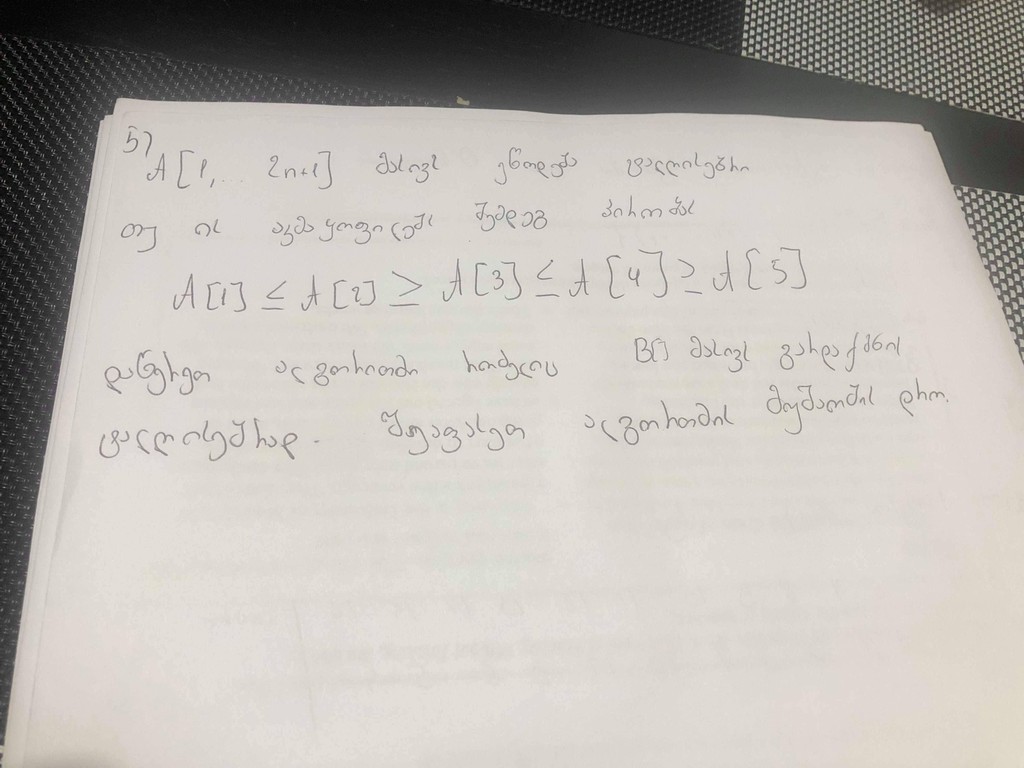 5)
A[1,... 2n+1] მასივს ეწოდება ტალღისებრი
თუ ის აკმაყოფილებს შემდეგ პირობას
A[1] ≤ A[2] ≥ A[3] ≤ A[4] ≥ A[5]
დაწერეთ ალგორითმი რომელიც B[] მასივს გარდაქმნის
ტალღისებრად. შეაფასეთ ალგორითმის მუშაობის დრო.